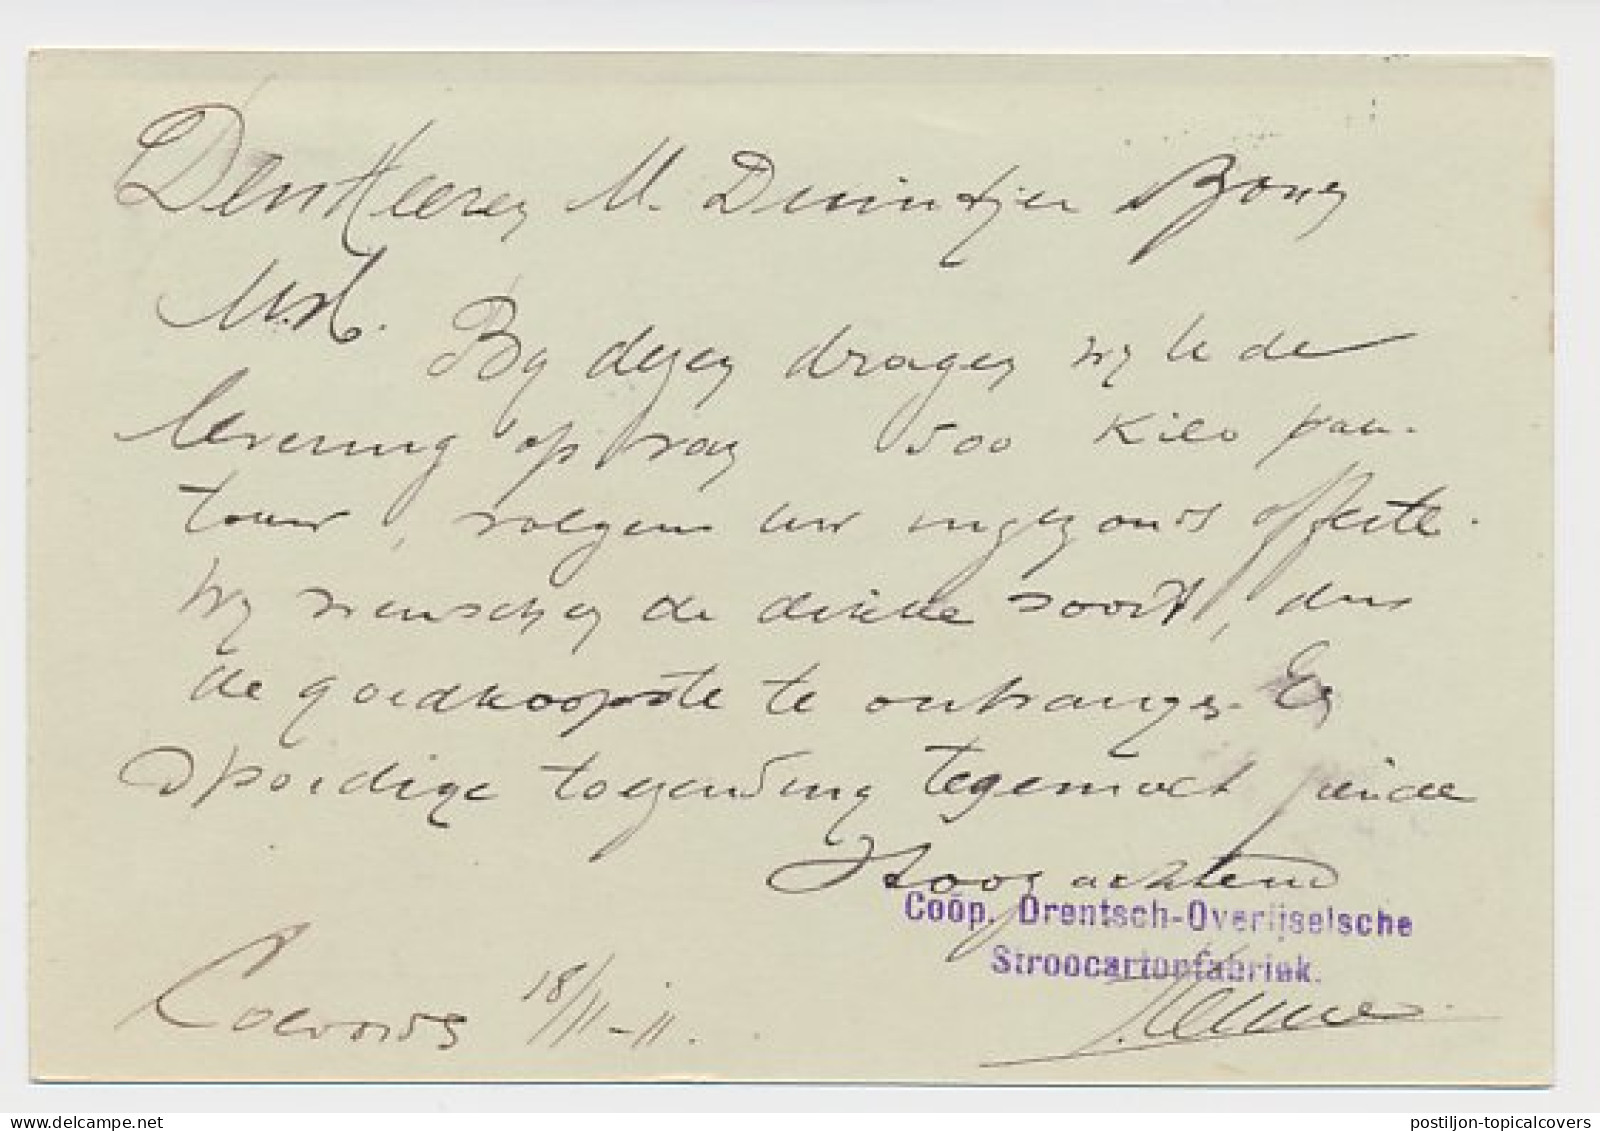 Den Heeren M. Duintjer Bonz
M.H.
By dezen dragen wy U de
levering op van 500 Kilo pau-
touw, volgens uw ingezonds offerte.
Wy wenschen de dikke soort, dus
de goedkoopste te ontvangen. En
Spoedige toezending tegemoet ziende
Hoogachtend
Coöp. Drentsch-Overijselsche
Stroocartonfabriek.
Coevorden 18/11-11.
postiljon-topicalcovers